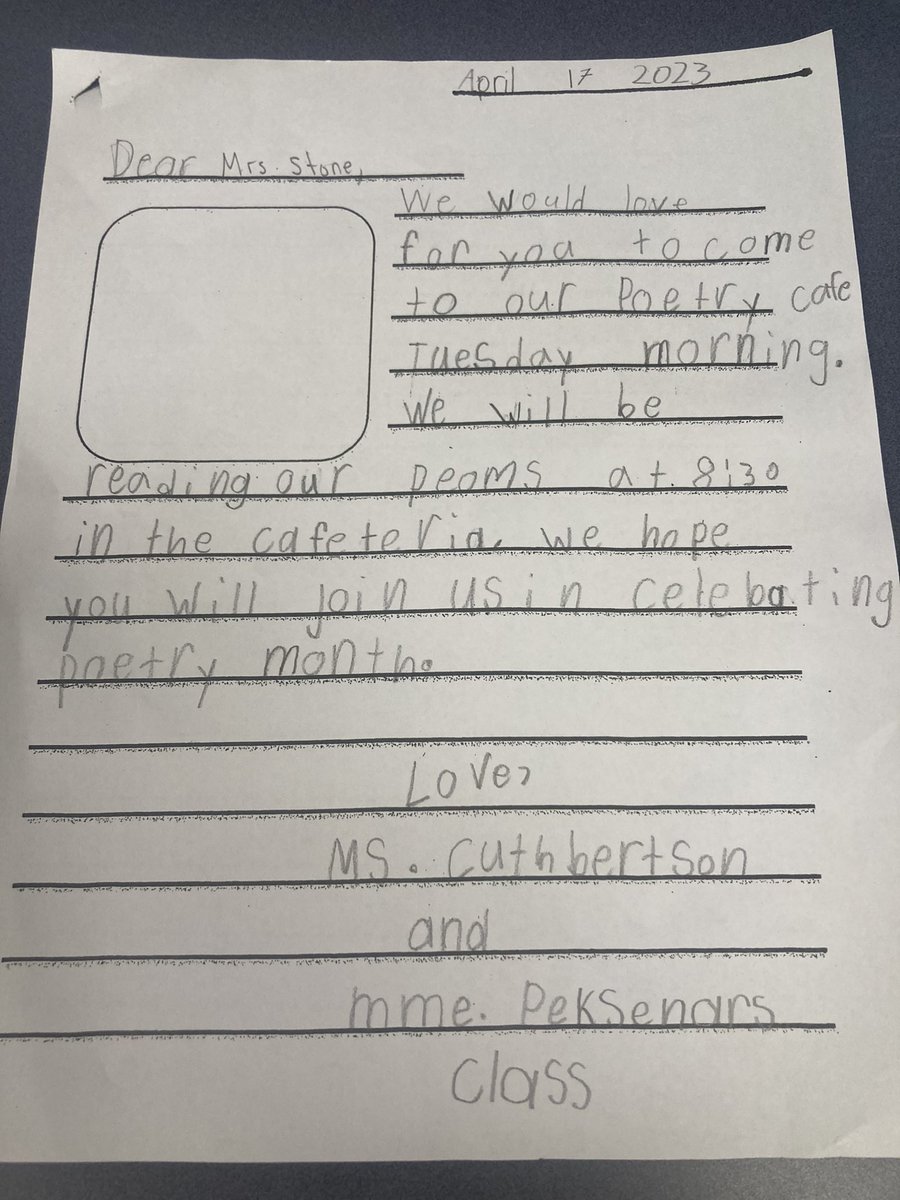 April 17 2023
Dear Mrs. Stone,
We would love
for you to come
to our Poetry cafe
Tuesday morning.
We will be
reading our peoms at 8:30
in the cafeteria. we hope
you will join us in celebating
poetry month.
Love,
MS. Cuthbertson
and
mme. Peksenars
Class